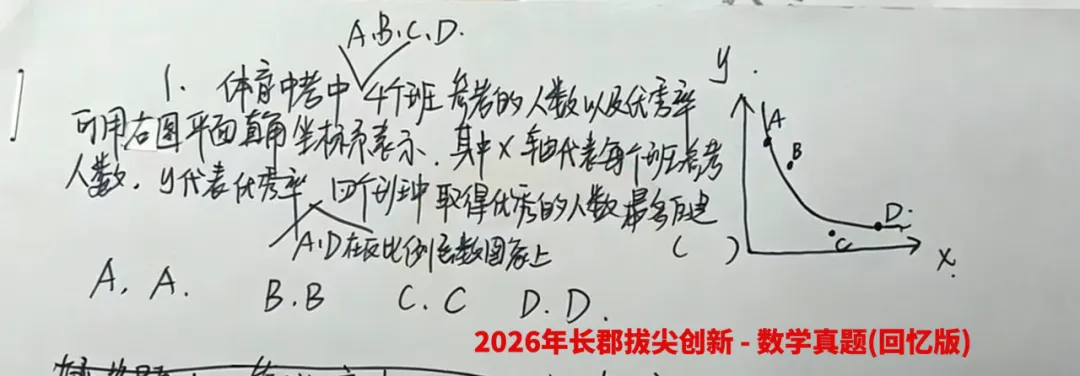 A.B.C.D.
1. 体育中考中4个班参考的人数以及优秀率
可用右图平面直角坐标系表示.其中X轴代表每个班参考
人数,y代表优秀率 四个班中取得优秀的人数最多的是
A.D在反比例函数图象上 ( )
A. A. B. B C. C D. D.
y
A
B
C
D
x
2026年长郡拔尖创新 - 数学真题(回忆版)